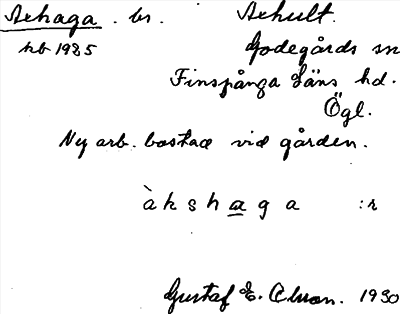 Axhaga . br. Axhult.
hb 1985 Godegårds sn
Finspånga Läns hd.
Ögl.
Ny arb. bostad vid gården.
àkshaga :r
Gustaf E. 1930